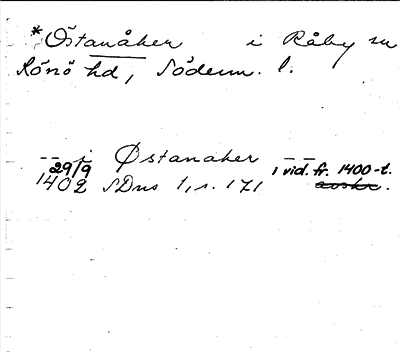 *Östanåker i Råby sn
Rönö hd, Söderm. l.
— — i Østanaker — —
29/9 1402 SDns 1, s. 171 i vid. fr. 1400-t.
avskr.